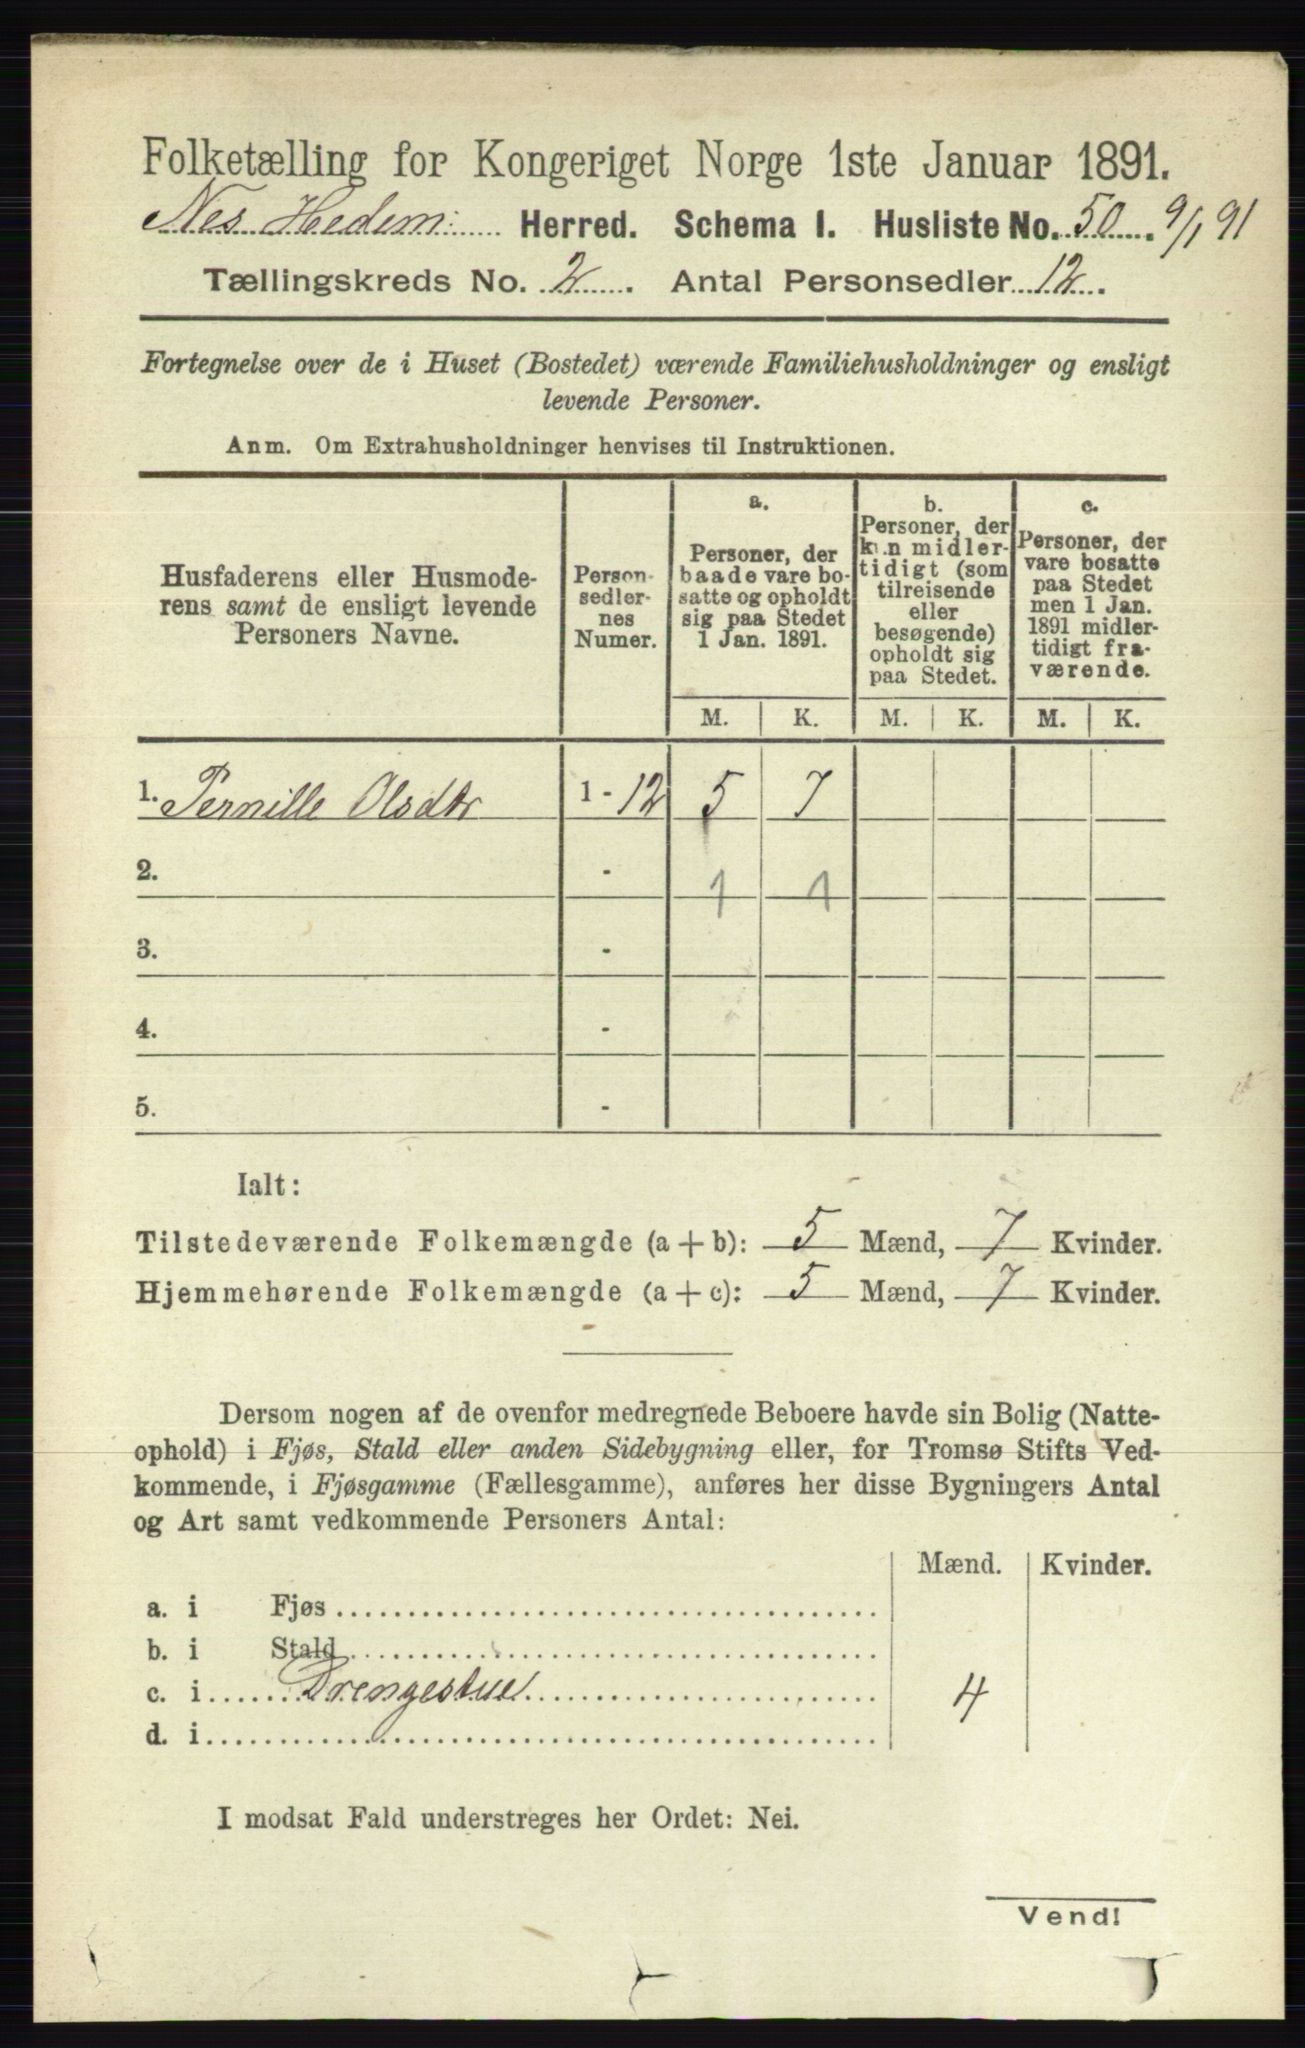 Folketælling for Kongeriget Norge 1ste Januar 1891.
Nes Hedem: Herred. Schema I. Husliste No. 50. 9/1 91
Tællingskreds No. 2. Antal Personsedler 12.
Fortegnelse over de i Huset (Bostedet) værende Familiehusholdninger og ensligt
levende Personer.
Anm. Om Extrahusholdninger henvises til Instruktionen.
Husfaderens eller Husmode-
rens samt de ensligt levende
Personers Navne.
Person-
sedler-
nes
Numer.
a.
Personer, der
baade vare bo-
satte og opholdt
sig paa Stedet
1 Jan. 1891.
b.
Personer, der
kun midler-
tidigt (som
tilreisende
eller
besøgende)
opholdt sig
paa Stedet.
c.
Personer, der
vare bosatte
paa Stedet
men 1 Jan.
1891 midler-
tidigt fra-
værende.
M. K. M. K. M. K.
1. Pernille Olsdtr 1 - 12 5 7
2. - 1 1
3. -
4. -
5. -
Ialt:
Tilstedeværende Folkemængde (a + b): 5 Mænd, 7 Kvinder.
Hjemmehørende Folkemængde (a + c): 5 Mænd, 7 Kvinder.
Dersom nogen af de ovenfor medregnede Beboere havde sin Bolig (Natte-
ophold) i Fjøs, Stald eller anden Sidebygning eller, for Tromsø Stifts Ved-
kommende, i Fjøsgamme (Fællesgamme), anføres her disse Bygningers Antal
og Art samt vedkommende Personers Antal:
Mænd. Kvinder.
a. i Fjøs
b. i Stald
c. i Drengestue 4
d. i
I modsat Fald understreges her Ordet: Nei.
Vend!